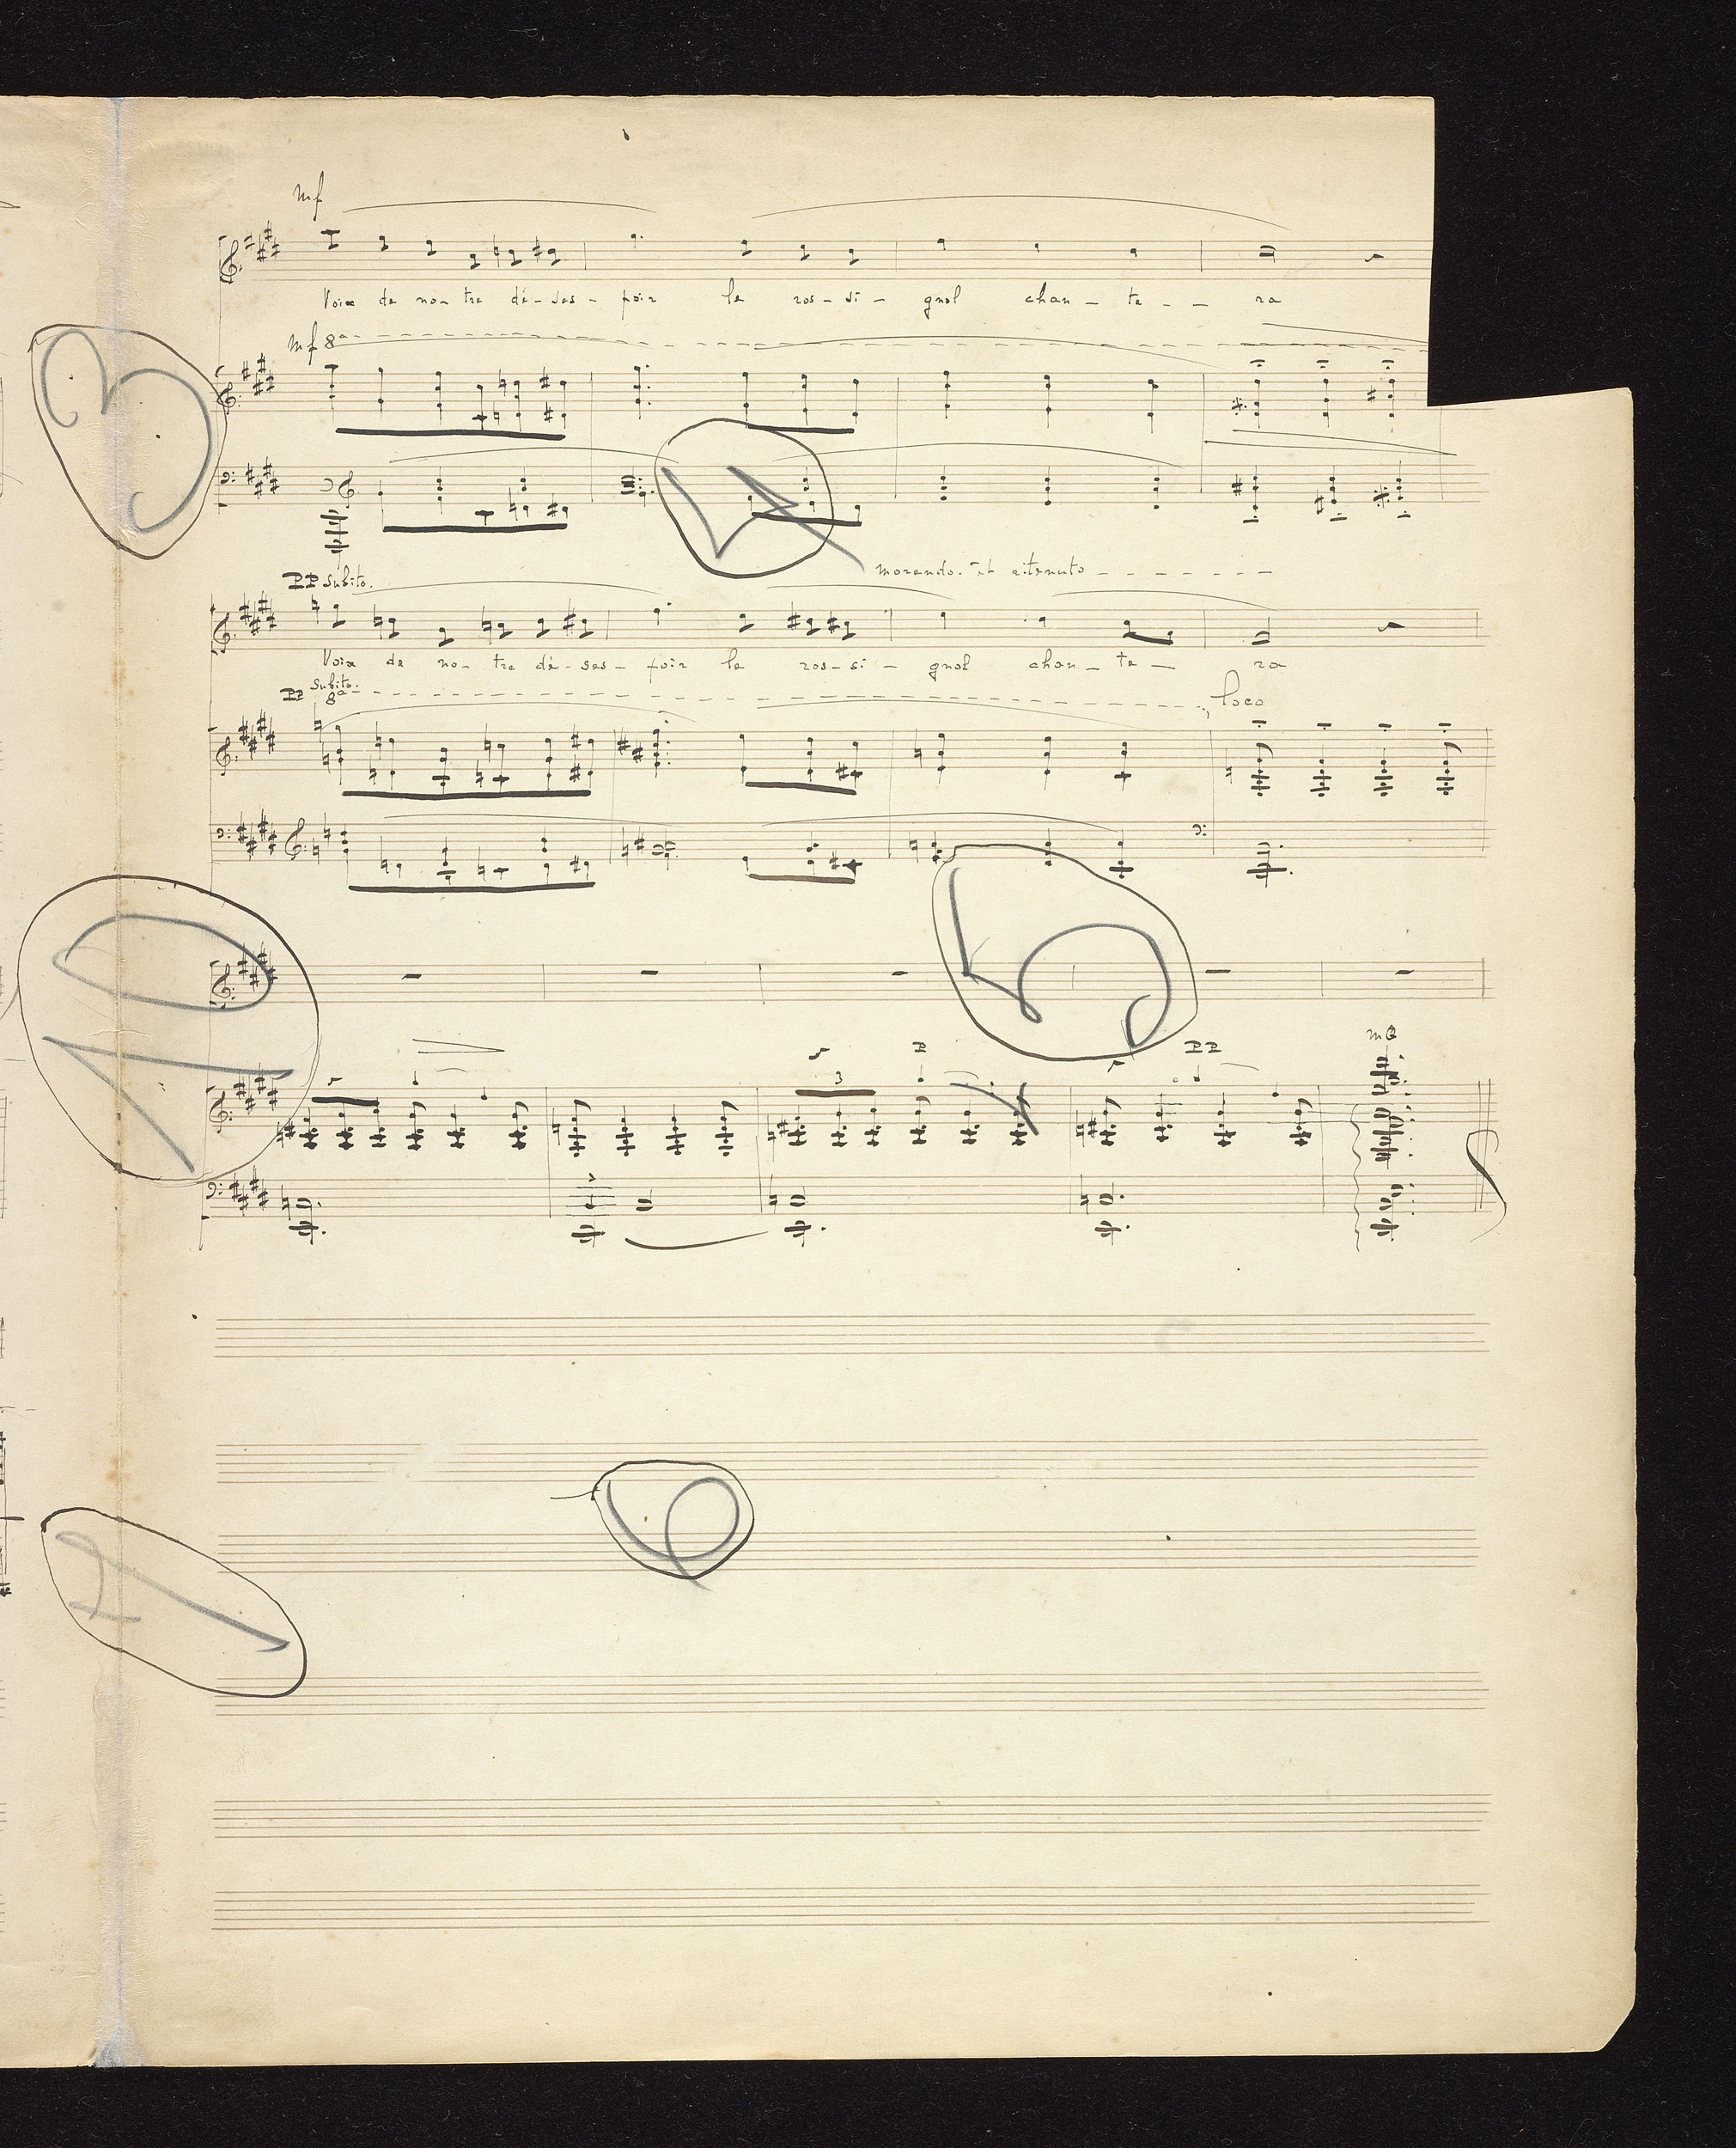 mf
Voix de no - tre dé - ses - poir le ros - si - gnol chan - te - - ra
mf 8a
3
4
PP subito. morendo. et ritenuto
Voix de no - tre dé - ses - poir le ros - si - gnol chan - te - ra
PP subito.
8a loco
10
5
P PP
3
6
7